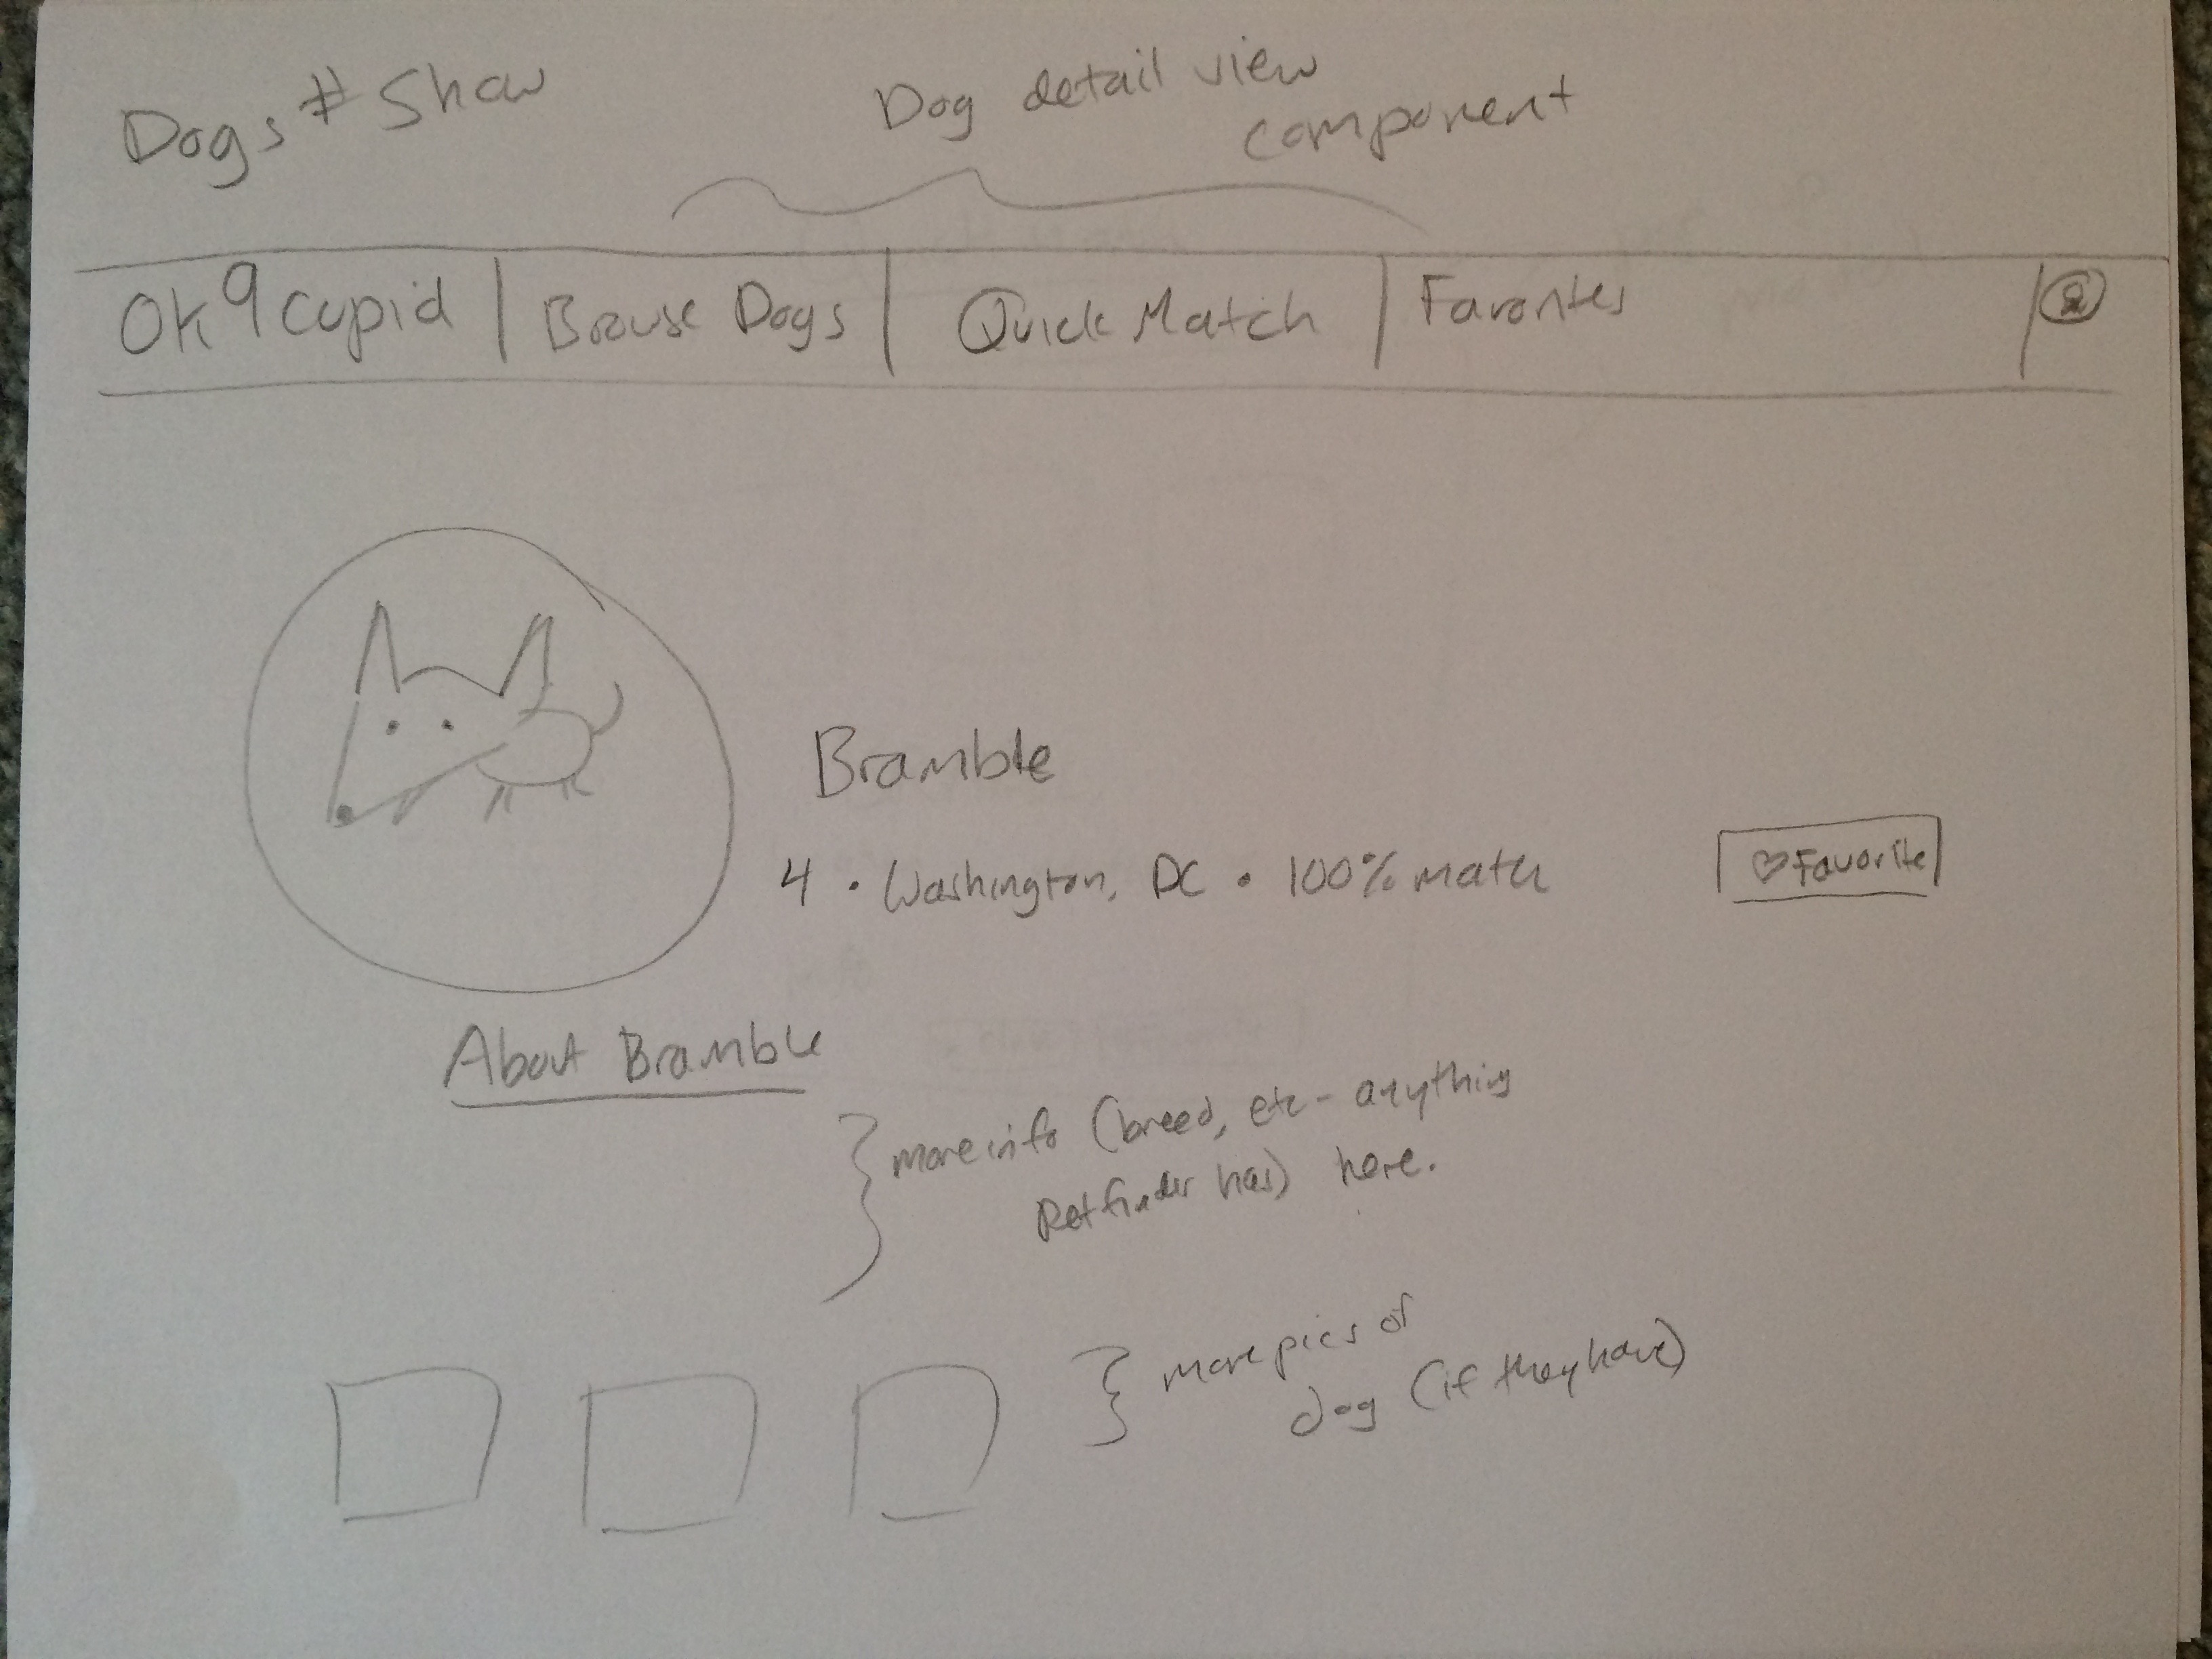 Dogs # Show
Dog detail view
component
OK9Cupid | Browse Dogs | Quick Match | Favorites
Bramble
4 • Washington, DC • 100% match
♡ Favorite
About Bramble
more info (breed, etc - anything
Petfinder has) here.
more pics of
dog (if they have)